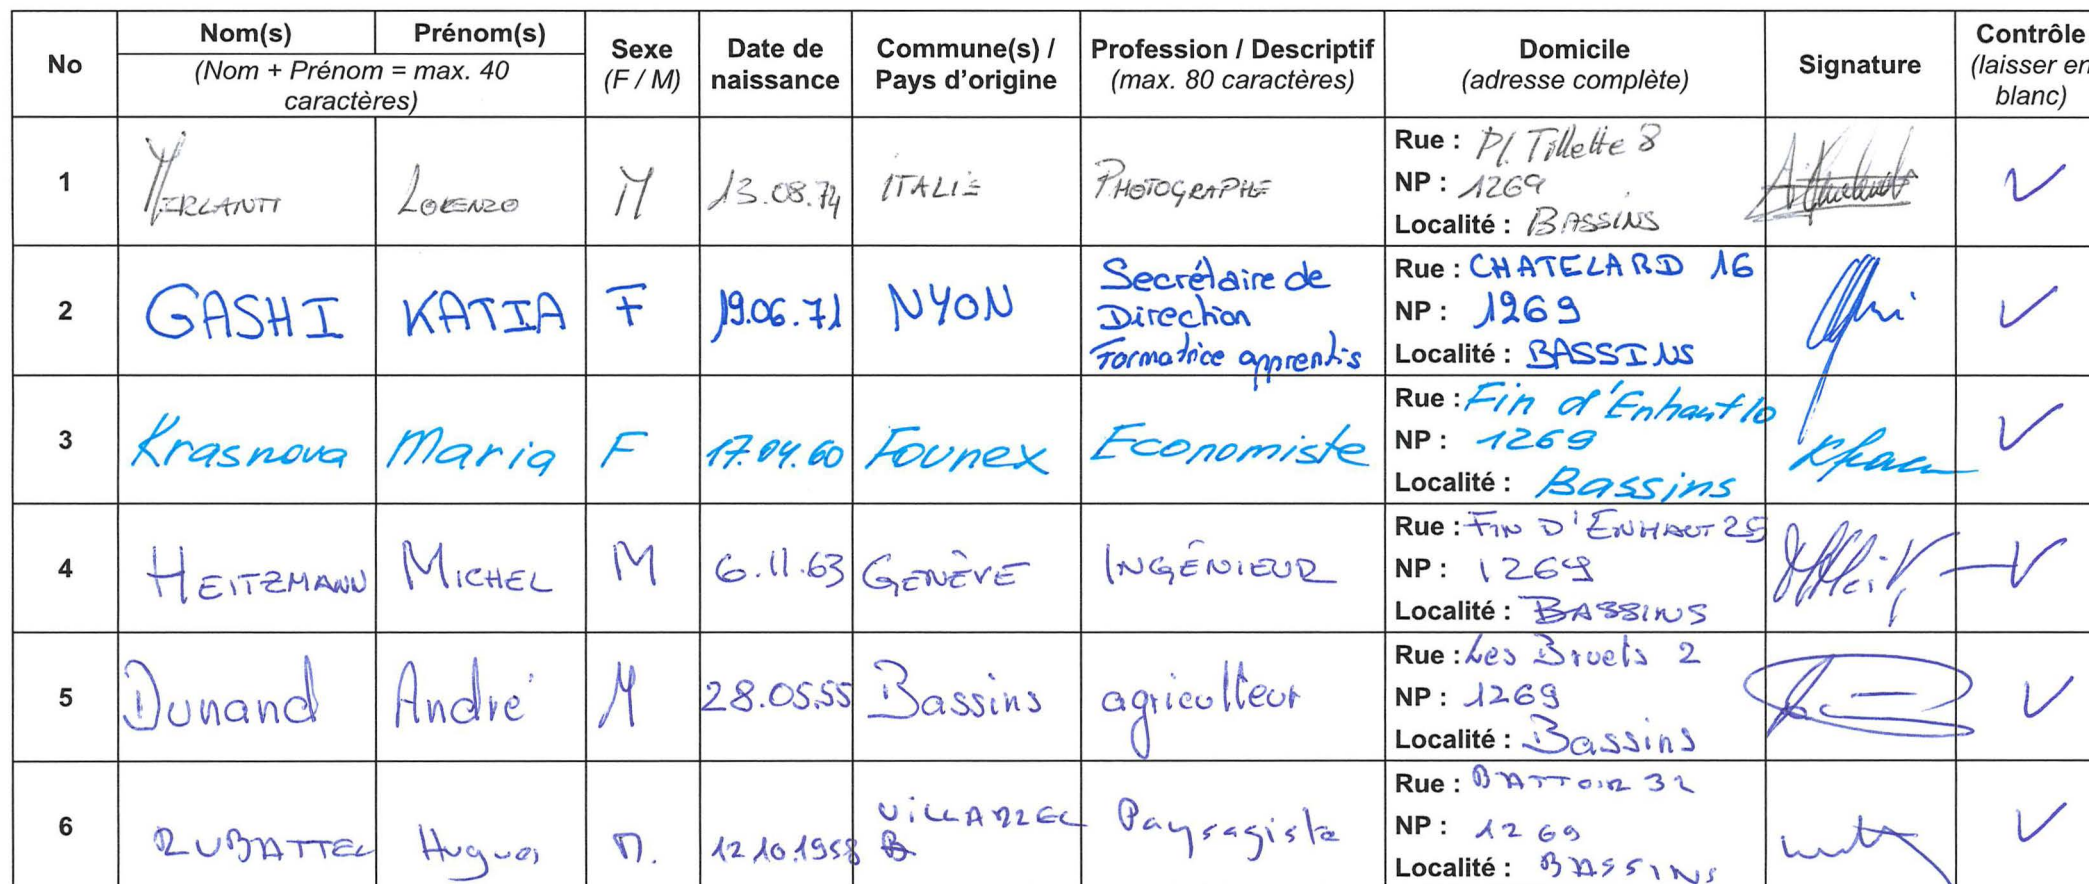 No
Nom(s) Prénom(s)
(Nom + Prénom = max. 40
caractères)
Sexe
(F / M)
Date de
naissance
Commune(s) /
Pays d'origine
Profession / Descriptif
(max. 80 caractères)
Domicile
(adresse complète)
Signature
Contrôle
(laisser en
blanc)
1
LORENZO
M
13.08.74
ITALIE
PHOTOGRAPHE
Rue : Pl. Tillette 8
NP : 1269
Localité : BASSINS
2
GASHI
KATIA
F
19.06.71
NYON
Secrétaire de
Direction
Formatrice apprentis
Rue : CHATELARD 16
NP : 1269
Localité : BASSINS
3
Krasnova
Maria
F
17.04.60
Founex
Economiste
Rue : Fin d'Enhaut 10
NP : 1269
Localité : Bassins
4
HEITZMANN
MICHEL
M
6.11.63
GENÈVE
INGÉNIEUR
Rue : FIN D'ENHAUT 25
NP : 1269
Localité : BASSINS
5
Dunand
André
M
28.05.55
Bassins
agriculteur
Rue : Les Bruets 2
NP : 1269
Localité : Bassins
6
RUBATTEL
Hugues
M.
12.10.1958
VILLARZEL
Paysagiste
Rue : BATTOIR 32
NP : 1269
Localité : BASSINS